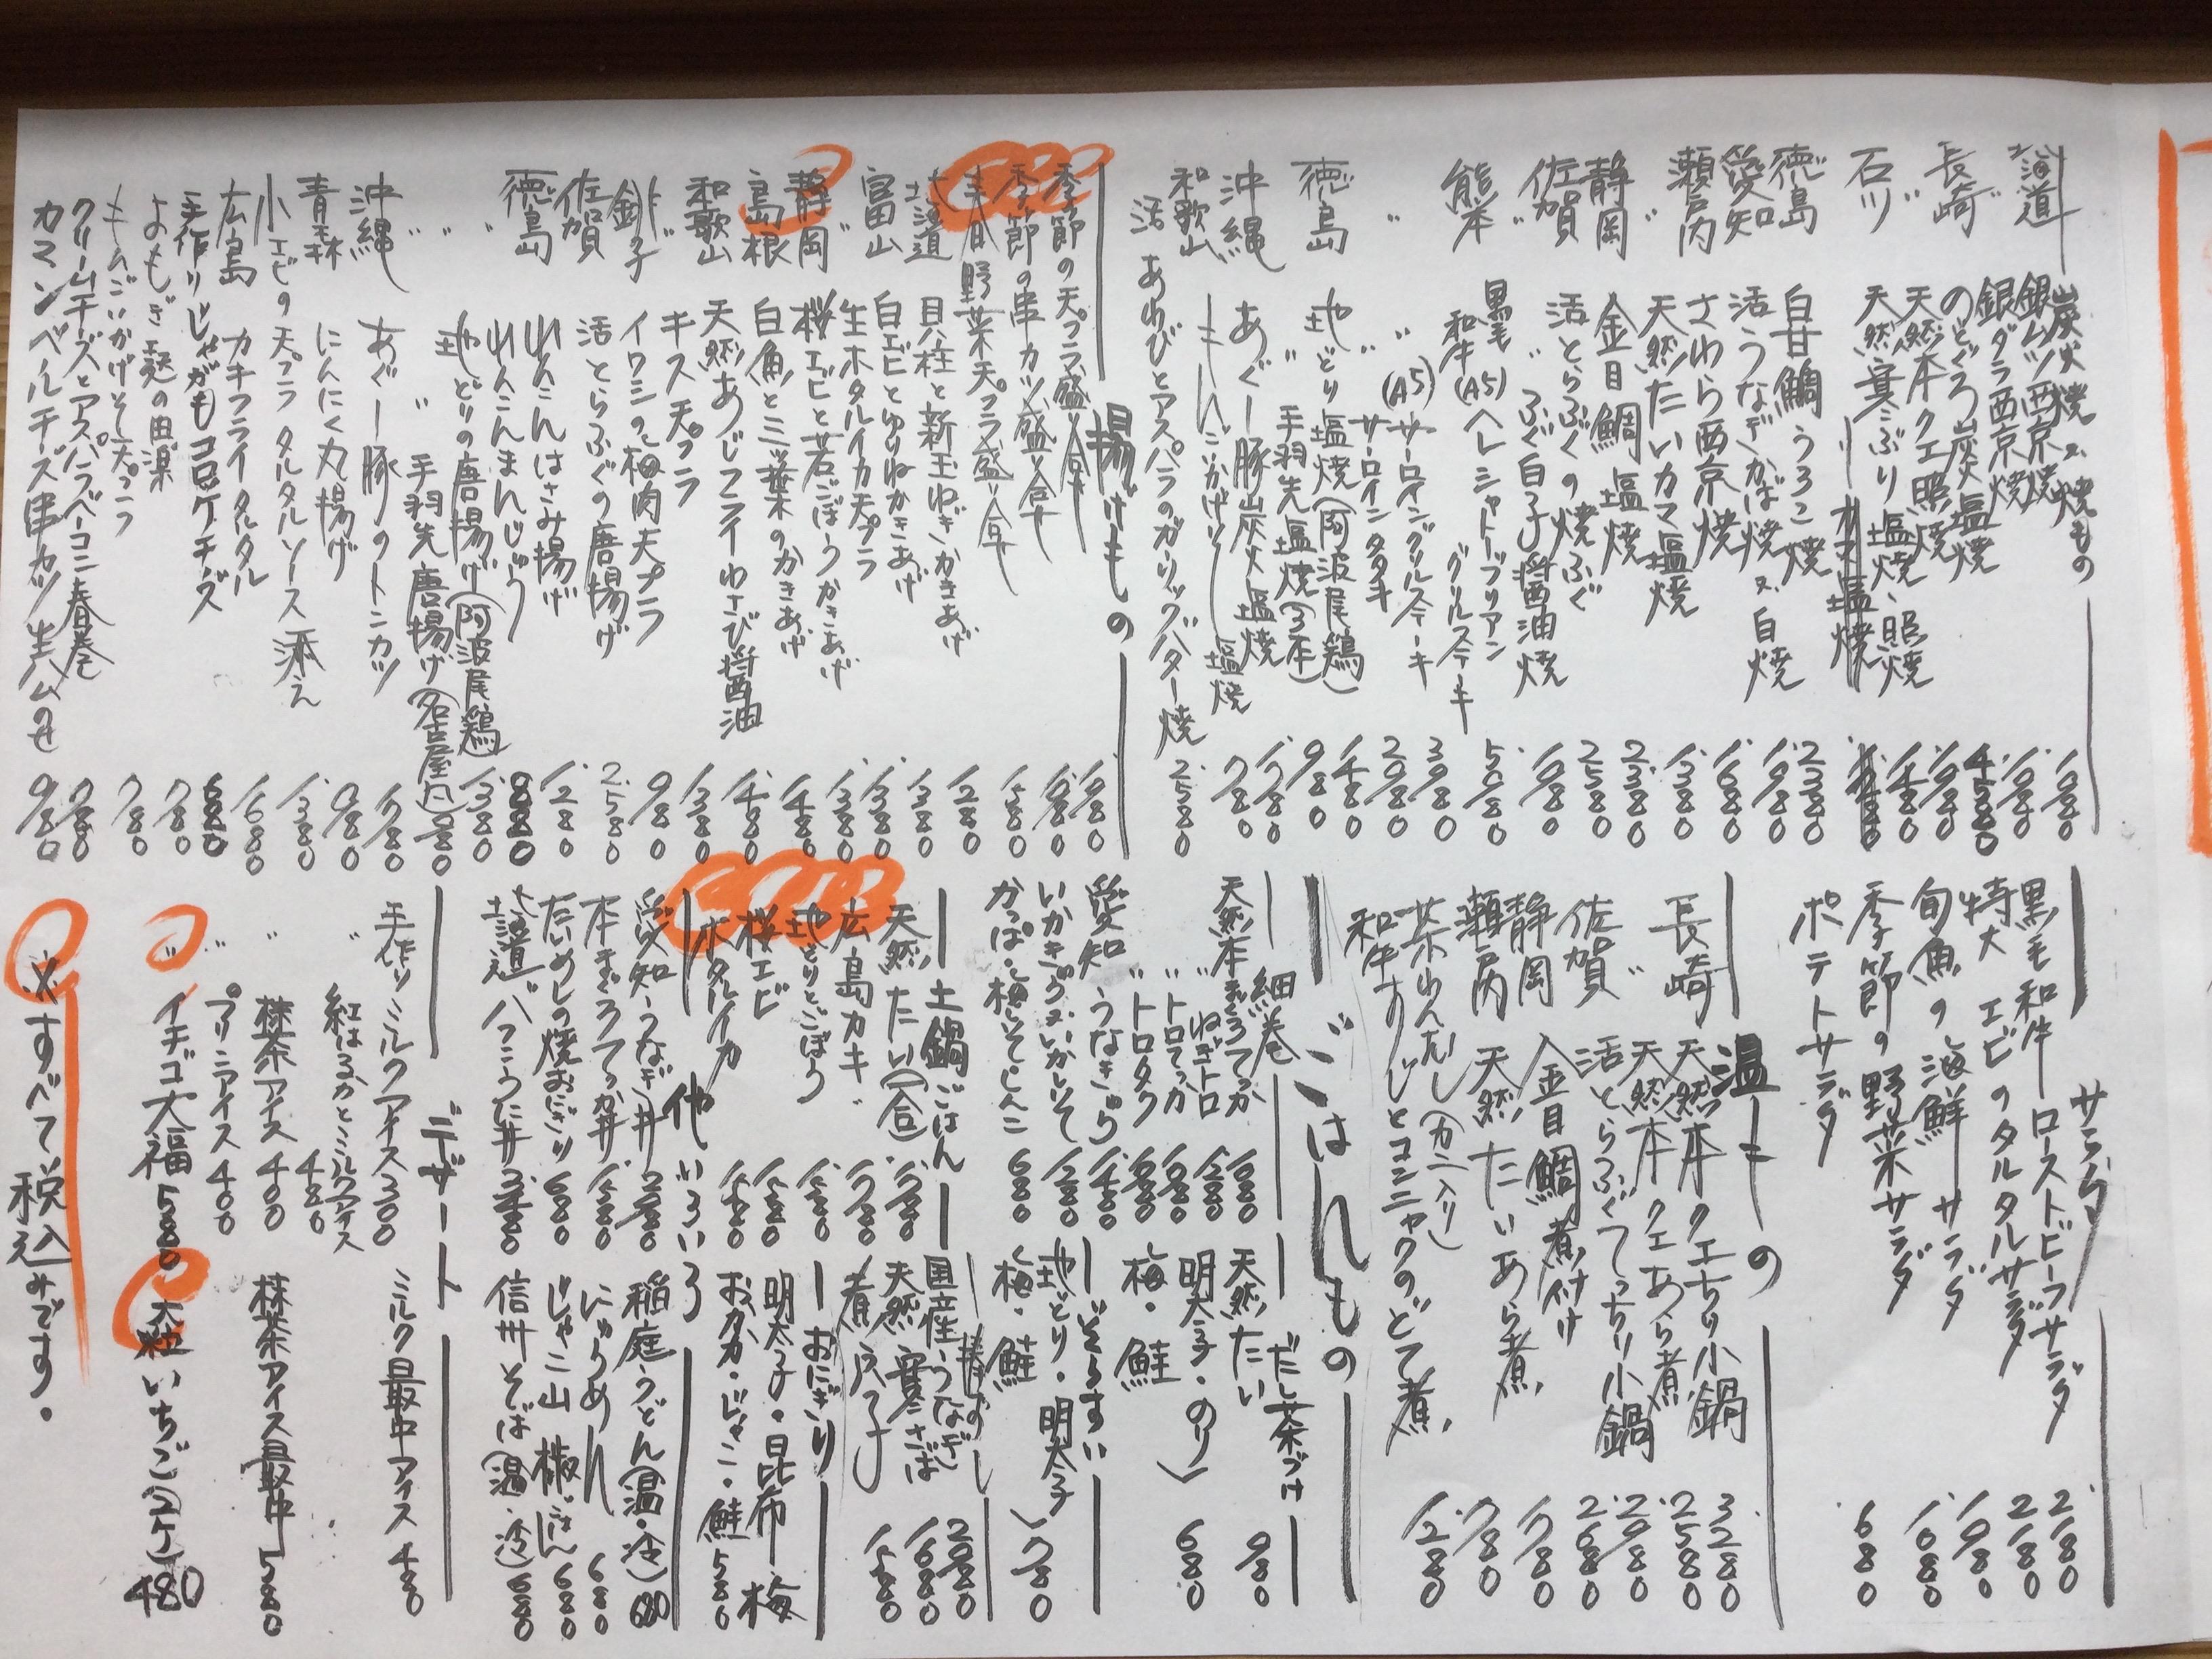 炭火焼・焼もの
北海道 銀ムツ西京焼
銀ダラ西京焼
長崎 のどぐろ炭火塩焼 4580
〃 天然本クエ照焼
石川 天然寒ぶり塩焼、照焼 1480
〃 カマ塩焼
徳島 白甘鯛うろこ焼 2380
愛知 活うなぎかば焼 又 白焼
瀬戸内 さわら西京焼 1680
〃 天然たいカマ塩焼 1380
静岡 金目鯛塩焼 2380
佐賀 活とらふぐの焼ふぐ 2580
〃 〃 ふぐ白子醤油焼
熊本 黒毛和牛(A5)ヘレシャトーブリアングリルステーキ 5080
〃 〃 (A5)サーロイングリルステーキ
サーロインタタキ
徳島 地どり塩焼(阿波尾鶏) 1480
〃 手羽先塩焼(3本) 980
沖縄 あぐー豚炭火塩焼 1780
和歌山 塩焼 780
活あわびとアスパラのガーリックバター焼 2580
揚げもの
季節の天プラ盛り合せ
季節の串カツ盛り合せ
野菜天プラ盛り合せ
北海道 貝柱と新玉ねぎかきあげ
富山 白エビとゆりねかきあげ 1380
〃 生ホタルイカ天プラ 1380
静岡 桜エビと若ごぼうかきあげ 1380
島根 白魚と三ッ葉のかきあげ 1480
和歌山 天然あじフライわさび醤油
〃 キス天プラ 1380
銚子 イワシの梅肉天プラ 980
佐賀 活とらふぐの唐揚げ 2580
れんこんはさみ揚げ 1280
れんこんまんじゅう
徳島 地どりの唐揚げ(阿波尾鶏) 1380
〃 〃 手羽先唐揚げ(名古屋風) 980
沖縄 あぐー豚のトンカツ 1780
青森 にんにく丸揚げ 980
小エビの天プラ タルタルソース添え 1380
広島 カキフライタルタル 1680
手作りじゃがもコロッケチーズ 680
よもぎ麩の田楽 780
しそ天プラ 780
クリームチーズとアスパラベーコン春巻
カマンベールチーズ串カツ 生ハムのせ 980
サラダ
黒毛和牛ローストビーフサラダ 2180
特大エビのタルタルサラダ 2180
旬魚の海鮮サラダ 1980
季節の野菜サラダ 1080
ポテトサラダ 680
温もの
長崎 天然本クエちり小鍋 3280
〃 天然本クエあら煮 2580
佐賀 活とらふぐてっちり小鍋
静岡 金目鯛煮付け 1780
瀬戸内 天然たいあら煮 1780
茶わんむし(カニ入り)
和牛すじとコンニャクのどて煮 1280
ごはんもの
細巻
天然本まぐろてっか
〃 ねぎトロ 1280
〃 トロてっか
〃 トロタク
愛知 うなきゅう 1480
いかきゅう・いかしそ 1280
かっぱ・梅しそ・しんこ 680
だし茶づけ
天然たい 980
明太子・のり
梅・鮭 680
ぞうすい
地どり・明太子
梅・鮭 780
土鍋ごはん
天然たい(一合)
広島カキ 1780
地どりとごぼう
桜エビ
ホタルイカ
棒ずし
国産うなぎ
天然寒さば 1680
煮穴子
おにぎり
明太子・昆布・梅
おかか・じゃこ・鮭 580
他いろいろ
愛知 うなぎ丼
本まぐろてっか丼
たいめしの焼おにぎり 680
北海道バフンうに丼
稲庭うどん(温・冷) 680
にゅうめん 680
じゃこ山椒ごはん 680
信州そば(温・冷) 680
デザート
手作りミルクアイス 300
〃 紅はるかとミルクアイス 480
〃 抹茶アイス 400
〃 プリンアイス 400
〃 イチゴ大福 580
ミルク最中アイス 480
抹茶アイス最中 580
大粒いちご(2ケ) 480
※すべて税込みです。